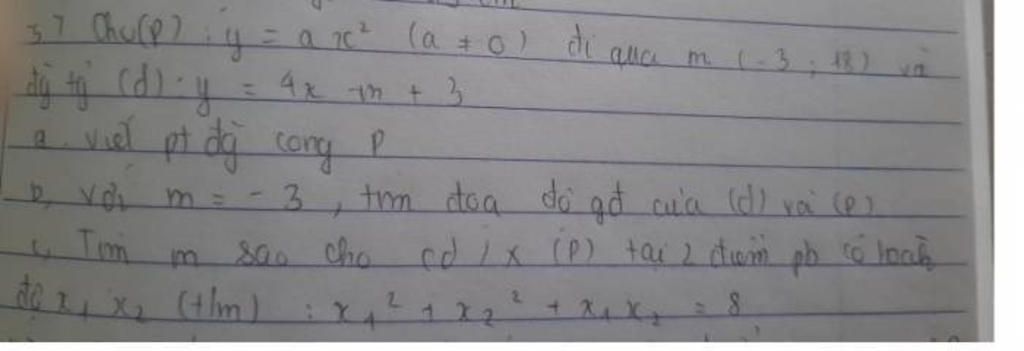 3, Cho (P) : y = ax² (a ≠ 0) đi qua m (-3 ; 18) và
đg tg (d) : y = 4x - m + 3
a. viết pt đg cong P
b, với m = -3, tìm tọa độ gđ của (d) và (P)
c, Tìm m sao cho (d) x (P) tại 2 điểm pb có hoành
độ x₁ x₂ (t/m) : x₁² + x₂² + x₁x₂ = 8